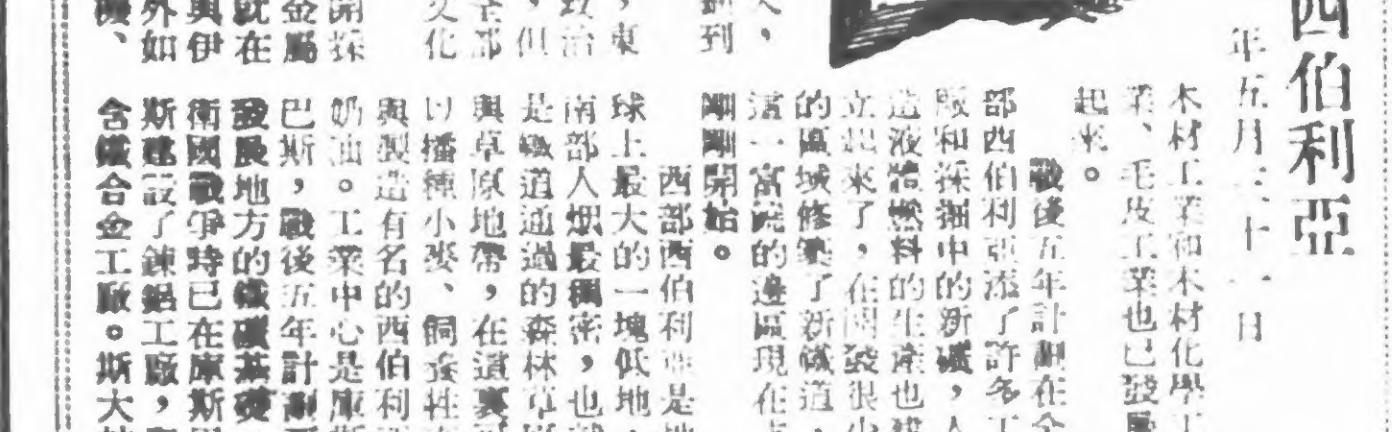 西伯利亞
年五月二十一日
木材工業和木材化學工
業、毛皮工業也已發展
起來。
戰後五年計劃在全
部西伯利亞添了許多工
廠和採掘中的新礦,人
造液體燃料的生產也建
立起來了,在開發很少
的區域修築了新鐵道,
這一富饒的邊區現在
剛剛開始。
西部西伯利亞是地
球上最大的一塊低地,
南部人烟最稠密,也
是鐵道通過的森林草原
與草原地帶,在這裏
以播種小麥、飼養牲
與製造有名的西伯利
奶油。工業中心是庫斯
巴斯,戰後五年計劃
發展地方的鐵礦基礎
衛國戰爭時已在庫斯
斯建設了鍊鋁工廠,
含鐵合金工廠。斯大
大,
到
,東
政治
,但
全部
文化
開採
金屬
就在
與伊
外如